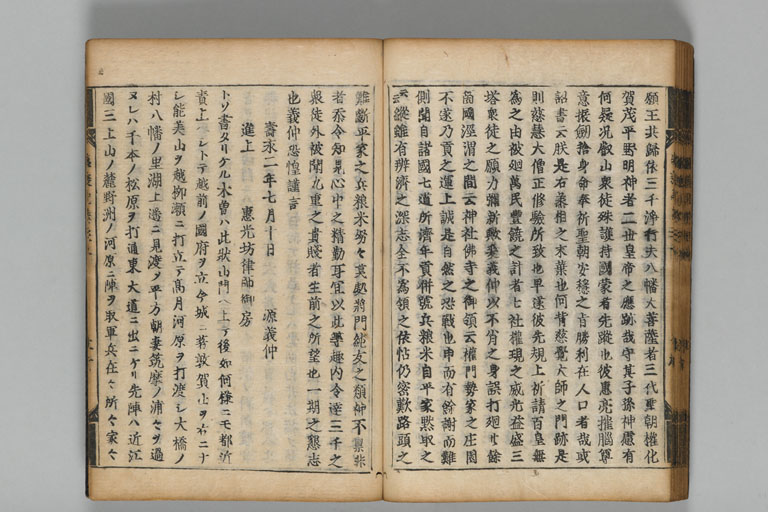 願王共歸依三千淨行夫八幡大菩薩者三代聖朝權化
賀茂平野明神者二世皇帝之應跡哉守其子孫神慮有
何疑况叡山衆徒殊護持國家者先蹤也彼惠亮摧腦尊
意振劔捨身命奉祈聖朝安穩之旨勝利在人口者哉或
詔書云朕是右丞相之末葉也何背慈覺大師之門跡是
則慈慧大僧正修驗所致也早逐彼先規上祈請百皇無
爲之由被廻萬民豐饒之計者七社權現之威光益盛三
塔衆徒之願力彌新歟爰義仲以不肖之身誤打廻廿餘
箇國涇渭之間云神社佛寺之御領云權門勢家之庄園
不遂乃貢之運上誠是自然之恐戰也申而有餘謝而難
側聞自諸國七道所濟年貢併號兵粮米自平家點取之
云縱雖有辨濟之深志全不爲領之依怙仍密歎路頭之
難斷平家之兵粮米努々莫與將門純友之類仲不禀非
者忝令知見心中之精勤耳宜以此等趣内令達三千之
衆徒外披聞九重之貴賤者生前之所望也一期之懇志
也義仲恐惶謹言
壽永二年七月十日 源義仲
進上 惠光坊律師御房
トソ書タリケル木曽ハ此狀山門ヘ上テ後如何樣ニモ都近
責上ラントテ越前ノ國府ヲ立今城ニ著敦賀山ヲ右ニナ
シ能美山ヲ越柳瀬ニ打立テ高月河原ヲ打渡シ大橋ノ
村八幡ノ里湖上遙ニ見渡ヲ平方朝妻筑摩ノ浦々ヲ過
ヌレハ千本ノ松原ヲ打通東大道ニ出ニケリ先陣ハ近江
國三上山ノ麓野洲ノ河原ニ陣ヲ取軍兵在々所々家々